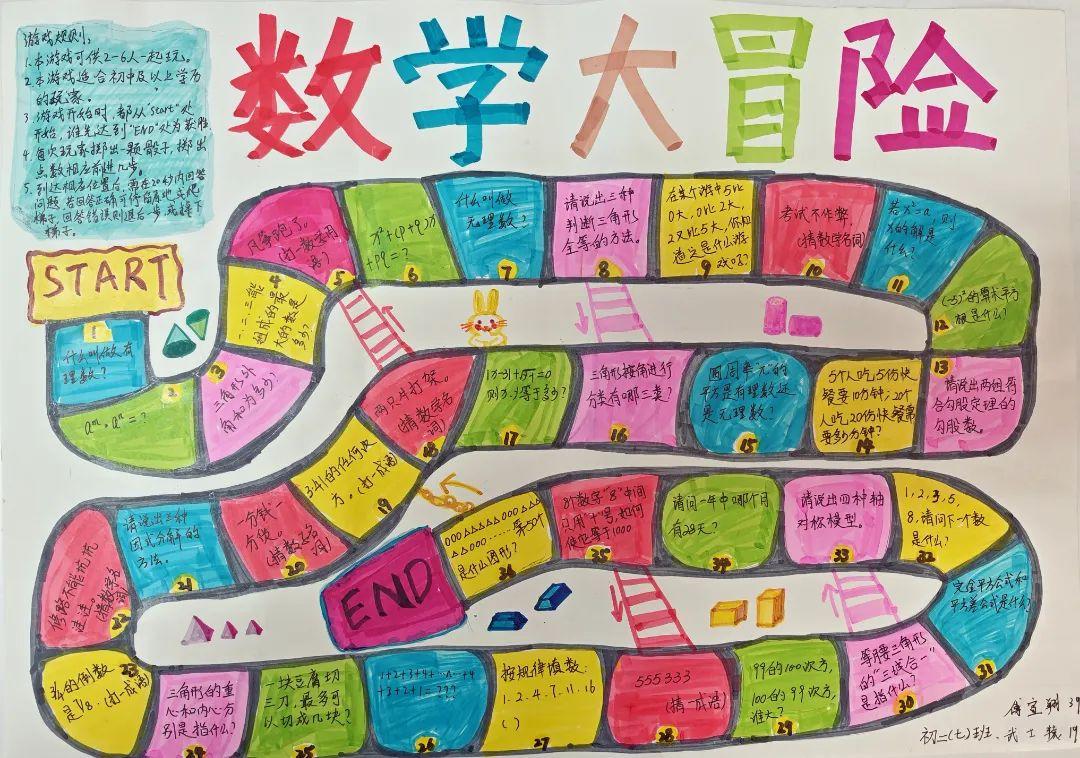 数学大冒险
游戏规则:
1.本游戏可供2-6人一起玩。
2.本游戏适合初中及以上学历
的玩家。
3.游戏开始时,都从"start"处
开始,谁先达到"END"处为获胜
4.每次玩家掷出一颗骰子,掷出
点数相应前进几步。
5.到达相应位置后,需在20秒内回答
问题,若回答正确可停留此地或爬
梯子,回答错误则退后一步或掉下
梯子。
START
1
什么叫做有
理数?
2
aᵐ·aⁿ=?
3
三角形外
角和为多少?
4
一、二、三能
组成的最
大的数是
多少?
5
风筝跑了。
6
x²+(p+q)x
+pq=?
7
什么叫做
无理数?
8
请说出三种
判断三角形
全等的方法。
9
在某个游中5比
0大,0比2大,
2又比5大,你知
道这是什么游
戏吗?
10
考试不作弊。
(猜数学名词)
11
若x²=a,则
x的解是
什么?
12
(-3)²的算术平方
根是什么?
13
请说出两组符
合勾股定理的
勾股数。
14
5个人吃5份快
餐要10分钟;20个
人吃20份快餐需
要多少分钟?
15
圆周率π的
平方是有理数还
是无理数?
16
三角形按角进行
分类有哪三类?
17
则x-y等于多少?
18
两只牛打架。
(猜数学名
词)
19
3.4.1的任何次
方。(打一成语)
20
一分钱,一
分货。
(猜数学名
词)
21
请说出三种
因式分解的
方法。
22
修路不能坑坑
洼洼。
(猜数学名
词)
23
的倒数
是7/8。(打一成语)
24
三角形的重
心和内心分
别是指什么?
25
一块豆腐切
三刀,最多可
以切成几块?
26
1+2+3+4+…+4
+3+2+1=???
27
按规律填数.
1.2.4.7.11.16
( )
28
555333
(猜一成语)
29
99的100次方,
100的99次方,
谁大?
30
等腰三角形
的"三线合一"
是指什么?
31
完全平方公式和
平方差公式是什么?
32
1,2,3,5,
8,请问下一个数
是什么?
33
请说出四种轴
对称模型。
34
请问一年中哪个月
有28天?
35
8个数字"8"中间
只用"+"号,如何
使它等于1000
36
000△△△△△000△△△
△△000……第50个
是什么图形?
END
初二(七)班